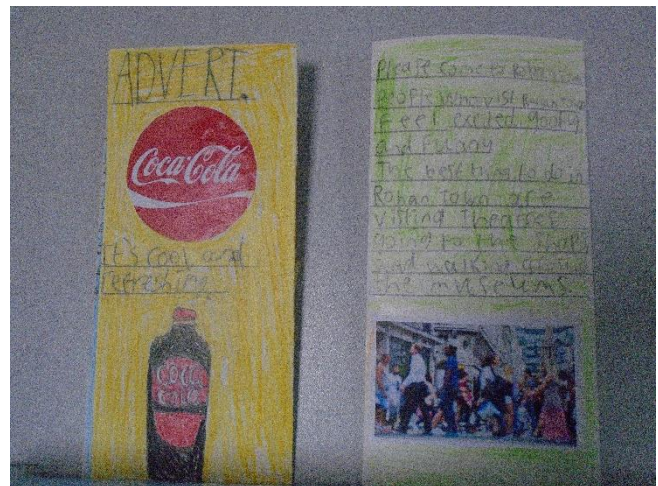 ADVERT.
Coca-Cola
It's cool and
refreshing
COCA
COLA
Please come to Rohan Town
People who visit Rohan Town
Feel excited
and Funny
The best thing to do in
Rohan Town are
visiting Theatres
going to the shops
and walking around
the museums